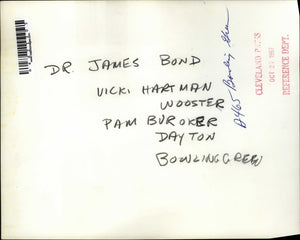 DR. JAMES BOND
VICKI HARTMAN
WOOSTER
PAM BUROKER
DAYTON
BOWLING GREEN
A465 Bowling Green
CLEVELAND PRESS
OCT 1967
REFERENCE DEPT.